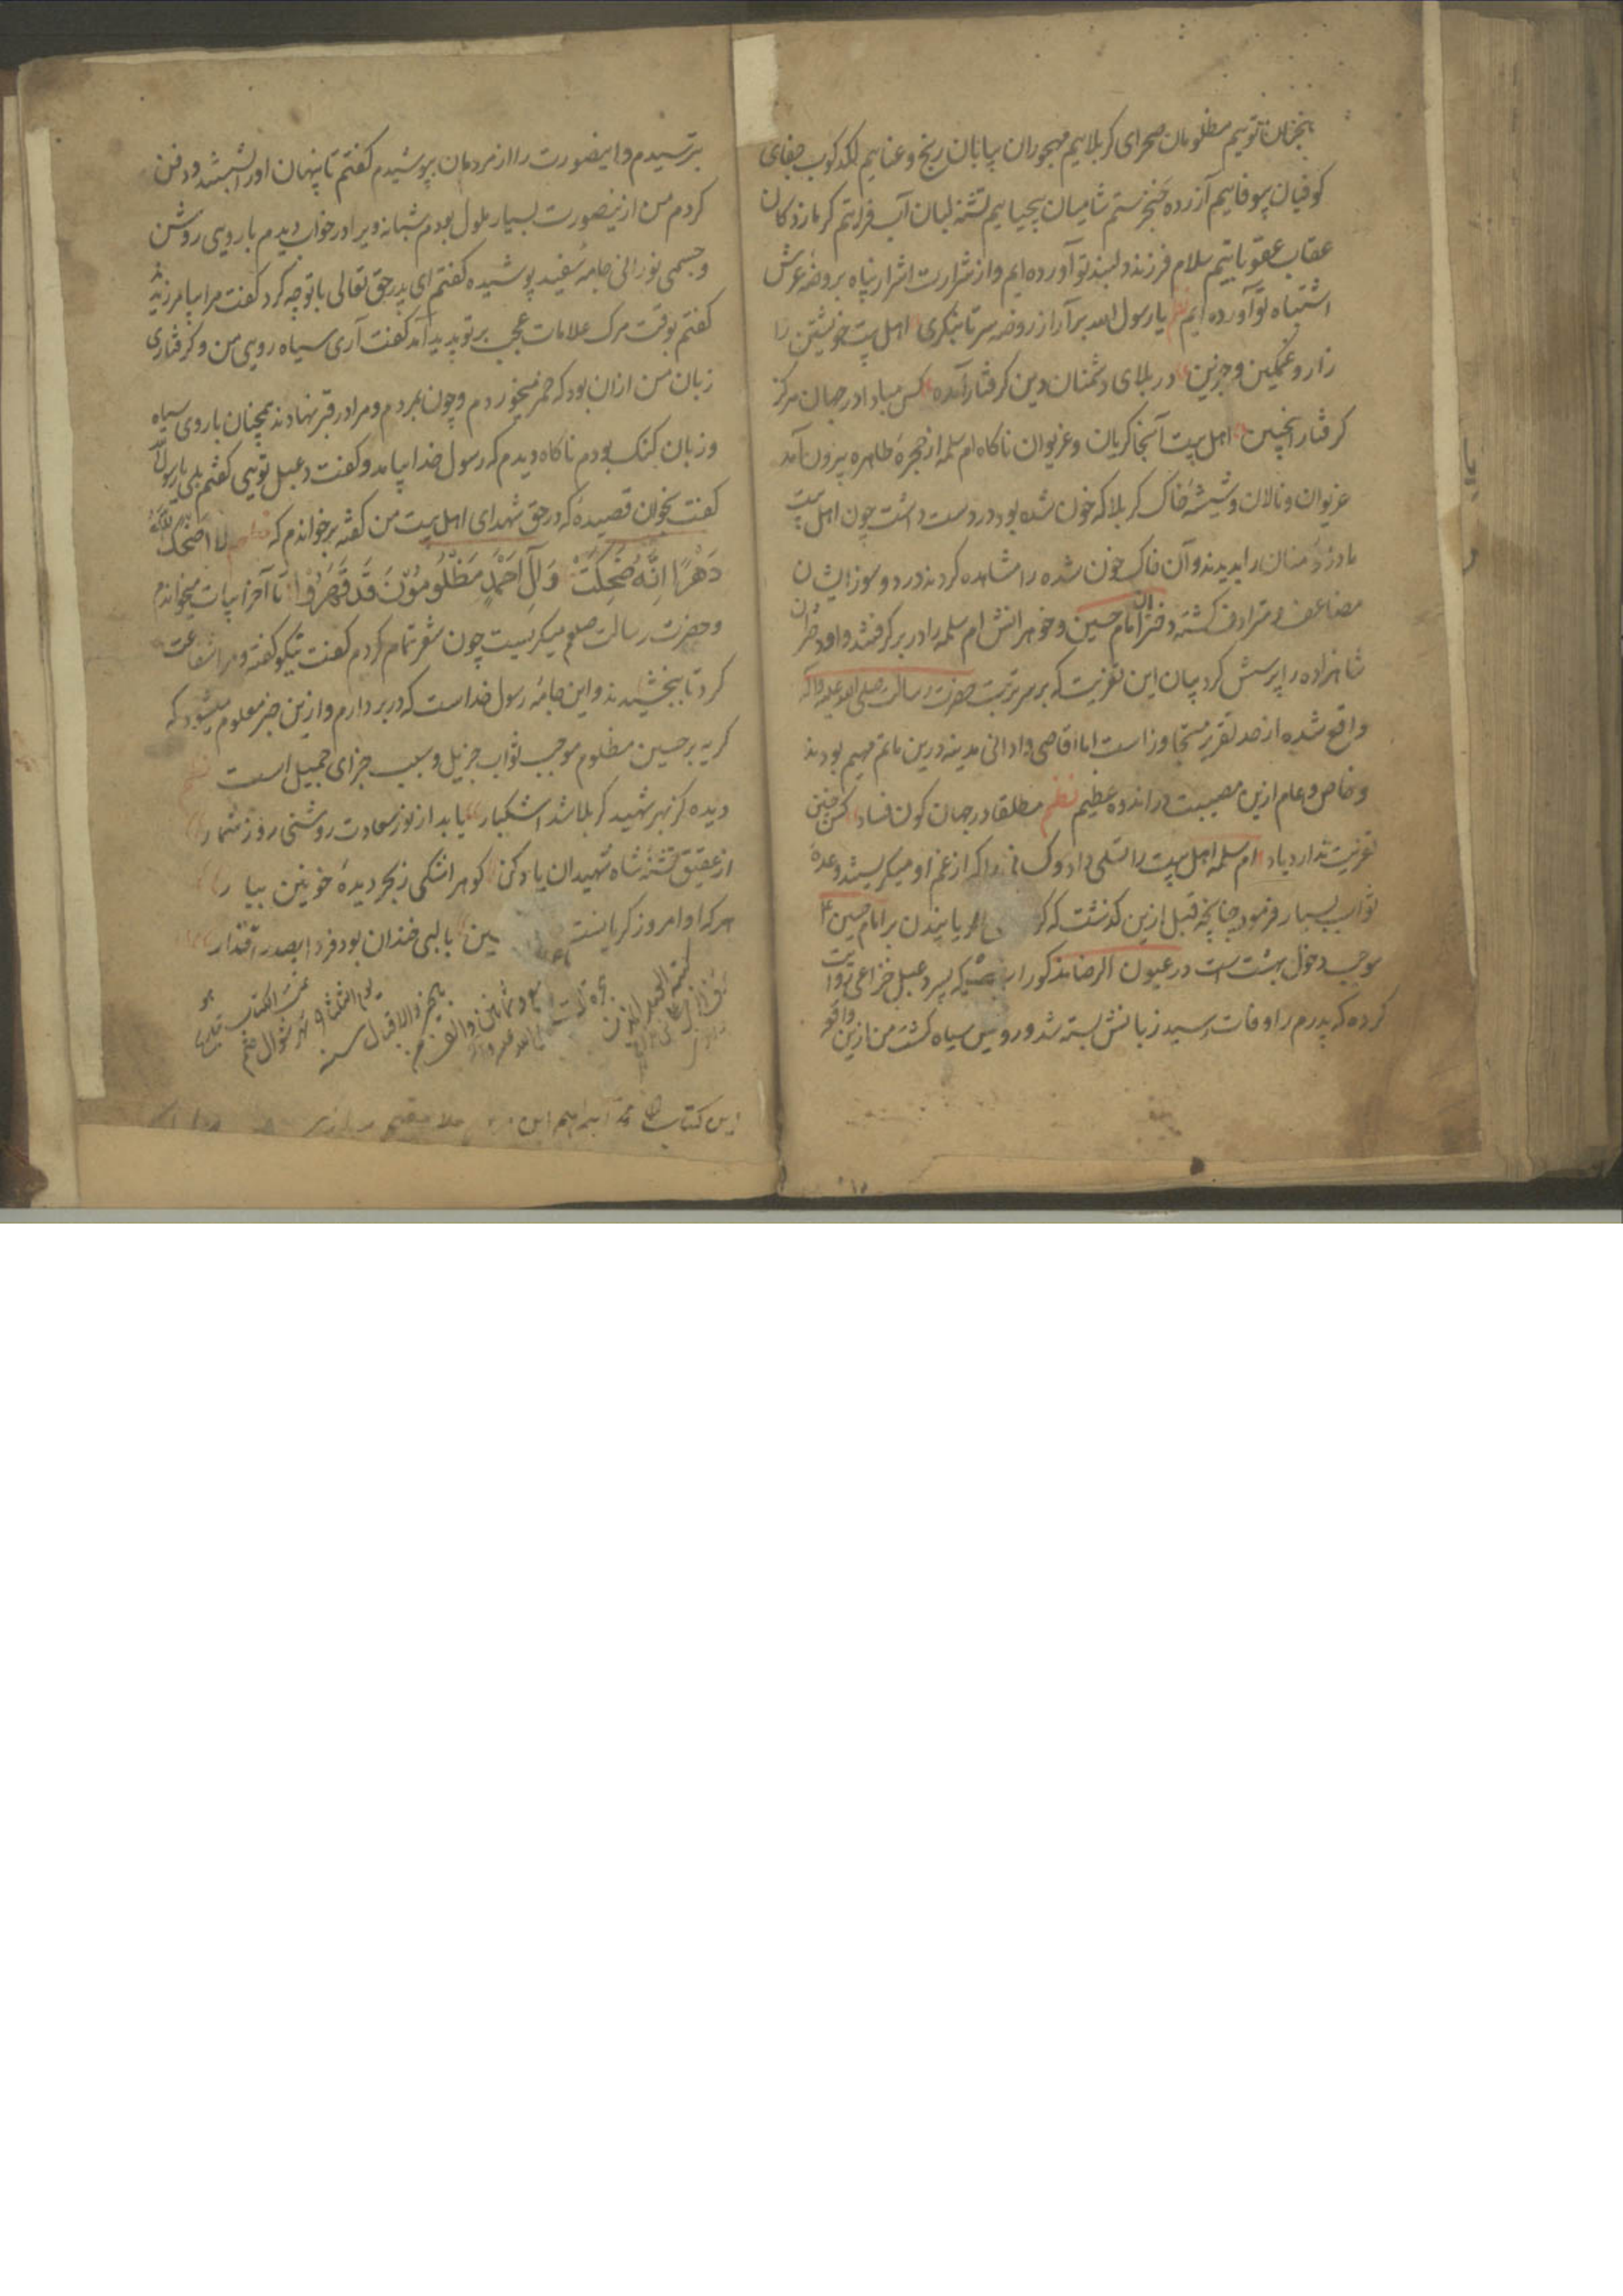 مظلومان صحرای کربلاییم مهجوران بیابان رنج و عناییم لکدکوب جفای
کوفیان بیوفاییم آزرده خنجر ستم شامیان بیحیاییم تشنه لبان آب فراتیم
عقاب عقوباتیم سلام فرزند دلبند تو آورده ایم و از شرارت اشرار پناه بروضه عرش
اشتباه تو آورده ایم نظم یا رسول الله برآر از روضه سر تا بنکری اهل بیت خویشتن را
زار و غمکین و حزین در بلای دشمنان دین کرفتار آمده کس مبادا در جهان هرکز
کرفتار اینچنین اهل بیت آنجا کریان و غریوان ناکاه ام سلمه از حجره طاهره بیرون آمد
غریوان و نالان و شیشه خاک کربلا که خون شده بود در دست داشت چون اهل بیت
مادر مؤمنان را بدیدند و آن خاک خون شده را مشاهده کردند درد و سوز ایشان
مضاعف و مترادف کشته دختران امام حسین و خواهرانش ام سلمه را در بر کرفتند و او دختران
شاهزاده را پرسش کرد بیان این تعزیت که بر سر تربت حضرت رسالت صلی الله علیه و آله
واقع شده از حد تقریر متجاوز است اما اقاصی و ادانی مدینه درین ماتم سهیم بودند
و خاص و عام ازین مصیبت در اندوه عظیم نظم مطلقا در جهان کون فساد کس چنین
تعزیت ندارد یاد ام سلمه اهل بیت را تسلی داد و کسانی را که از غم او میکریستند وعده
ثواب بسیار فرمود چنانچه قبل ازین کذشت که یا نیدن بر امام حسین ع
موجب دخول بهشت است در عیون الرضا مذکور که پسر دعبل خزاعی روایت
کرده که پدرم را وفات رسید زبانش بسته شد و رویش سیاه کشت من ازین واقعه
بترسیدم و اینصورت را از مردمان بپوشیدم کفتم تا پنهان او را بشستند و دفن
کردم من ازینصورت بسیار ملول بودم شبانه ویرا در خواب دیدم با رویی روشن
و جسمی نورانی جامه سفید پوشیده کفتم ای پدر حق تعالی با تو چه کرد کفت مرا بیامرزید
کفتم بوقت مرک علامات عجب بر تو پدید آمد کفت آری سیاه رویی من و کرفتاری
زبان من ازان بود که خمر میخوردم و چون بمردم و مرا در قبر نهادند همچنان با روی سیاه
و زبان کنک بودم ناکاه دیدم که رسول خدا بیامد و کفت دعبل تویی کفتم بلی یا رسول الله
کفت بخوان قصیده که در حق شهدای اهل بیت من کفته برخواندم که لا اضحک
دَهْرًا اِنَّه ضَحِکَتْ وَ آلِ اَحْمَدٍ مَظْلُومُونَ قَد قُهِرُوا تا آخر ابیات میخواندم
و حضرت رسالت صلعم میکریست چون شعر تمام کردم کفت نیکو کفته و مرا شفاعت
کرد تا ببخشیدند و این جامه رسول خداست که در بر دارم و ازین خبر معلوم میشود که
کریه بر حسین مظلوم موجب ثواب جزیل و سبب جزای جمیل است نظم
دیده کز بهر شهید کربلا شد اشکبار یابد از نور سعادت روشنی روز شمار
از عقیق تشنه شاه شهیدان یاد کن کوهر اشکی ز بحر دیده خونین بیار
هرکه او امروز کریانست با لبی خندان بود فردا بصدر اقتدار
تمت الکتاب
یوم الثلثا ۹ شهر شوال ختم
بالخیر والاقبال سنه
و ثمانین و الف
کتبه العبد المذنب
این کتاب محمد ابراهیم ابن